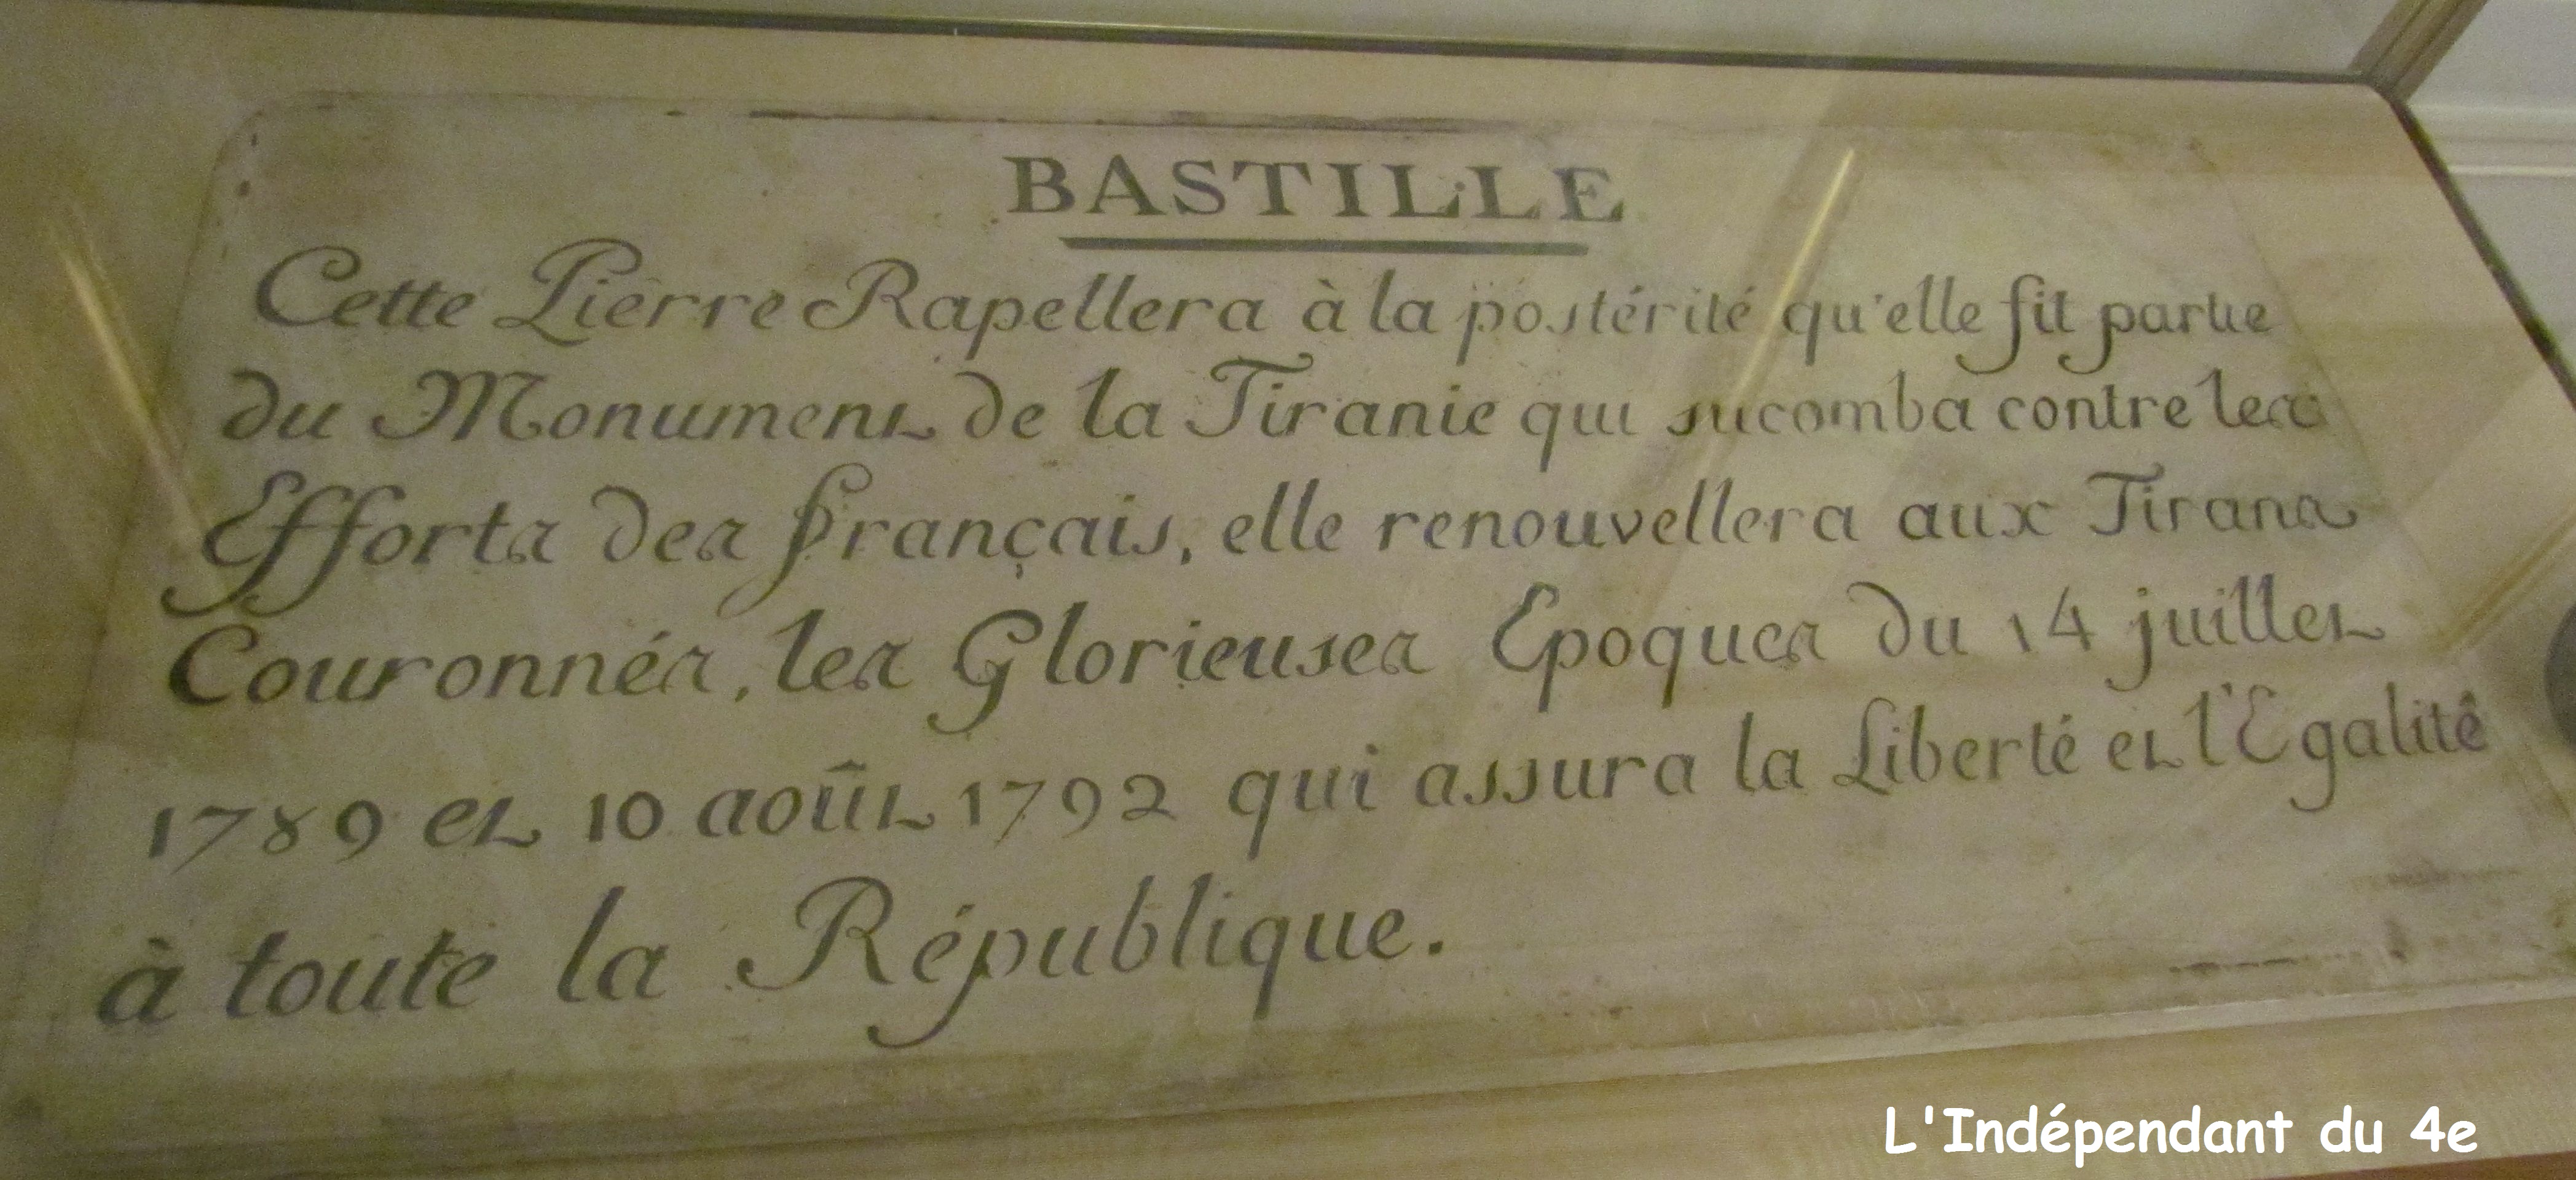 BASTILLE
Cette Pierre Rapellera à la postérité qu'elle fit partie
du Monument de la Tiranie qui sucomba contre les
Efforts des français, elle renouvellera aux Tirans
Couronnés, les Glorieuses Epoques du 14 juillet
1789 et 10 août 1792 qui assura la Liberté et l'Egalité
à toute la République.
L'Indépendant du 4e